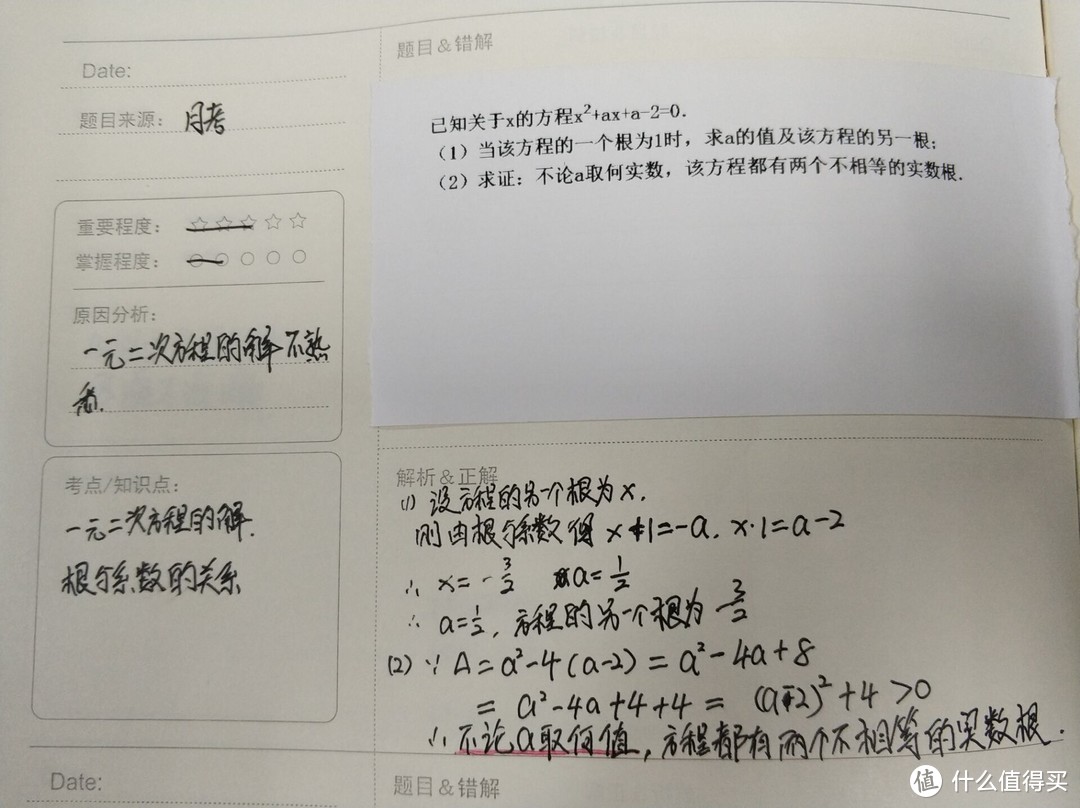 Date:
题目来源: 月考
重要程度: ☆☆☆☆☆
掌握程度: ○○○○○
原因分析:
一元二次方程的解不熟
悉.
考点/知识点:
一元二次方程的解.
根与系数的关系
题目&错解
已知关于x的方程x²+ax+a-2=0.
(1)当该方程的一个根为1时，求a的值及该方程的另一根;
(2)求证：不论a取何实数，该方程都有两个不相等的实数根.
解析&正解
(1) 设方程的另一个根为x.
则由根与系数得 x+1=-a. x·1=a-2
∴ x=-3/2 a=1/2
∴ a=1/2, 方程的另一个根为-3/2
(2) ∵ Δ=a²-4(a-2)=a²-4a+8
=a²-4a+4+4=(a-2)²+4>0
∴ 不论a取何值, 方程都有两个不相等的实数根.
Date:
题目&错解
值 什么值得买